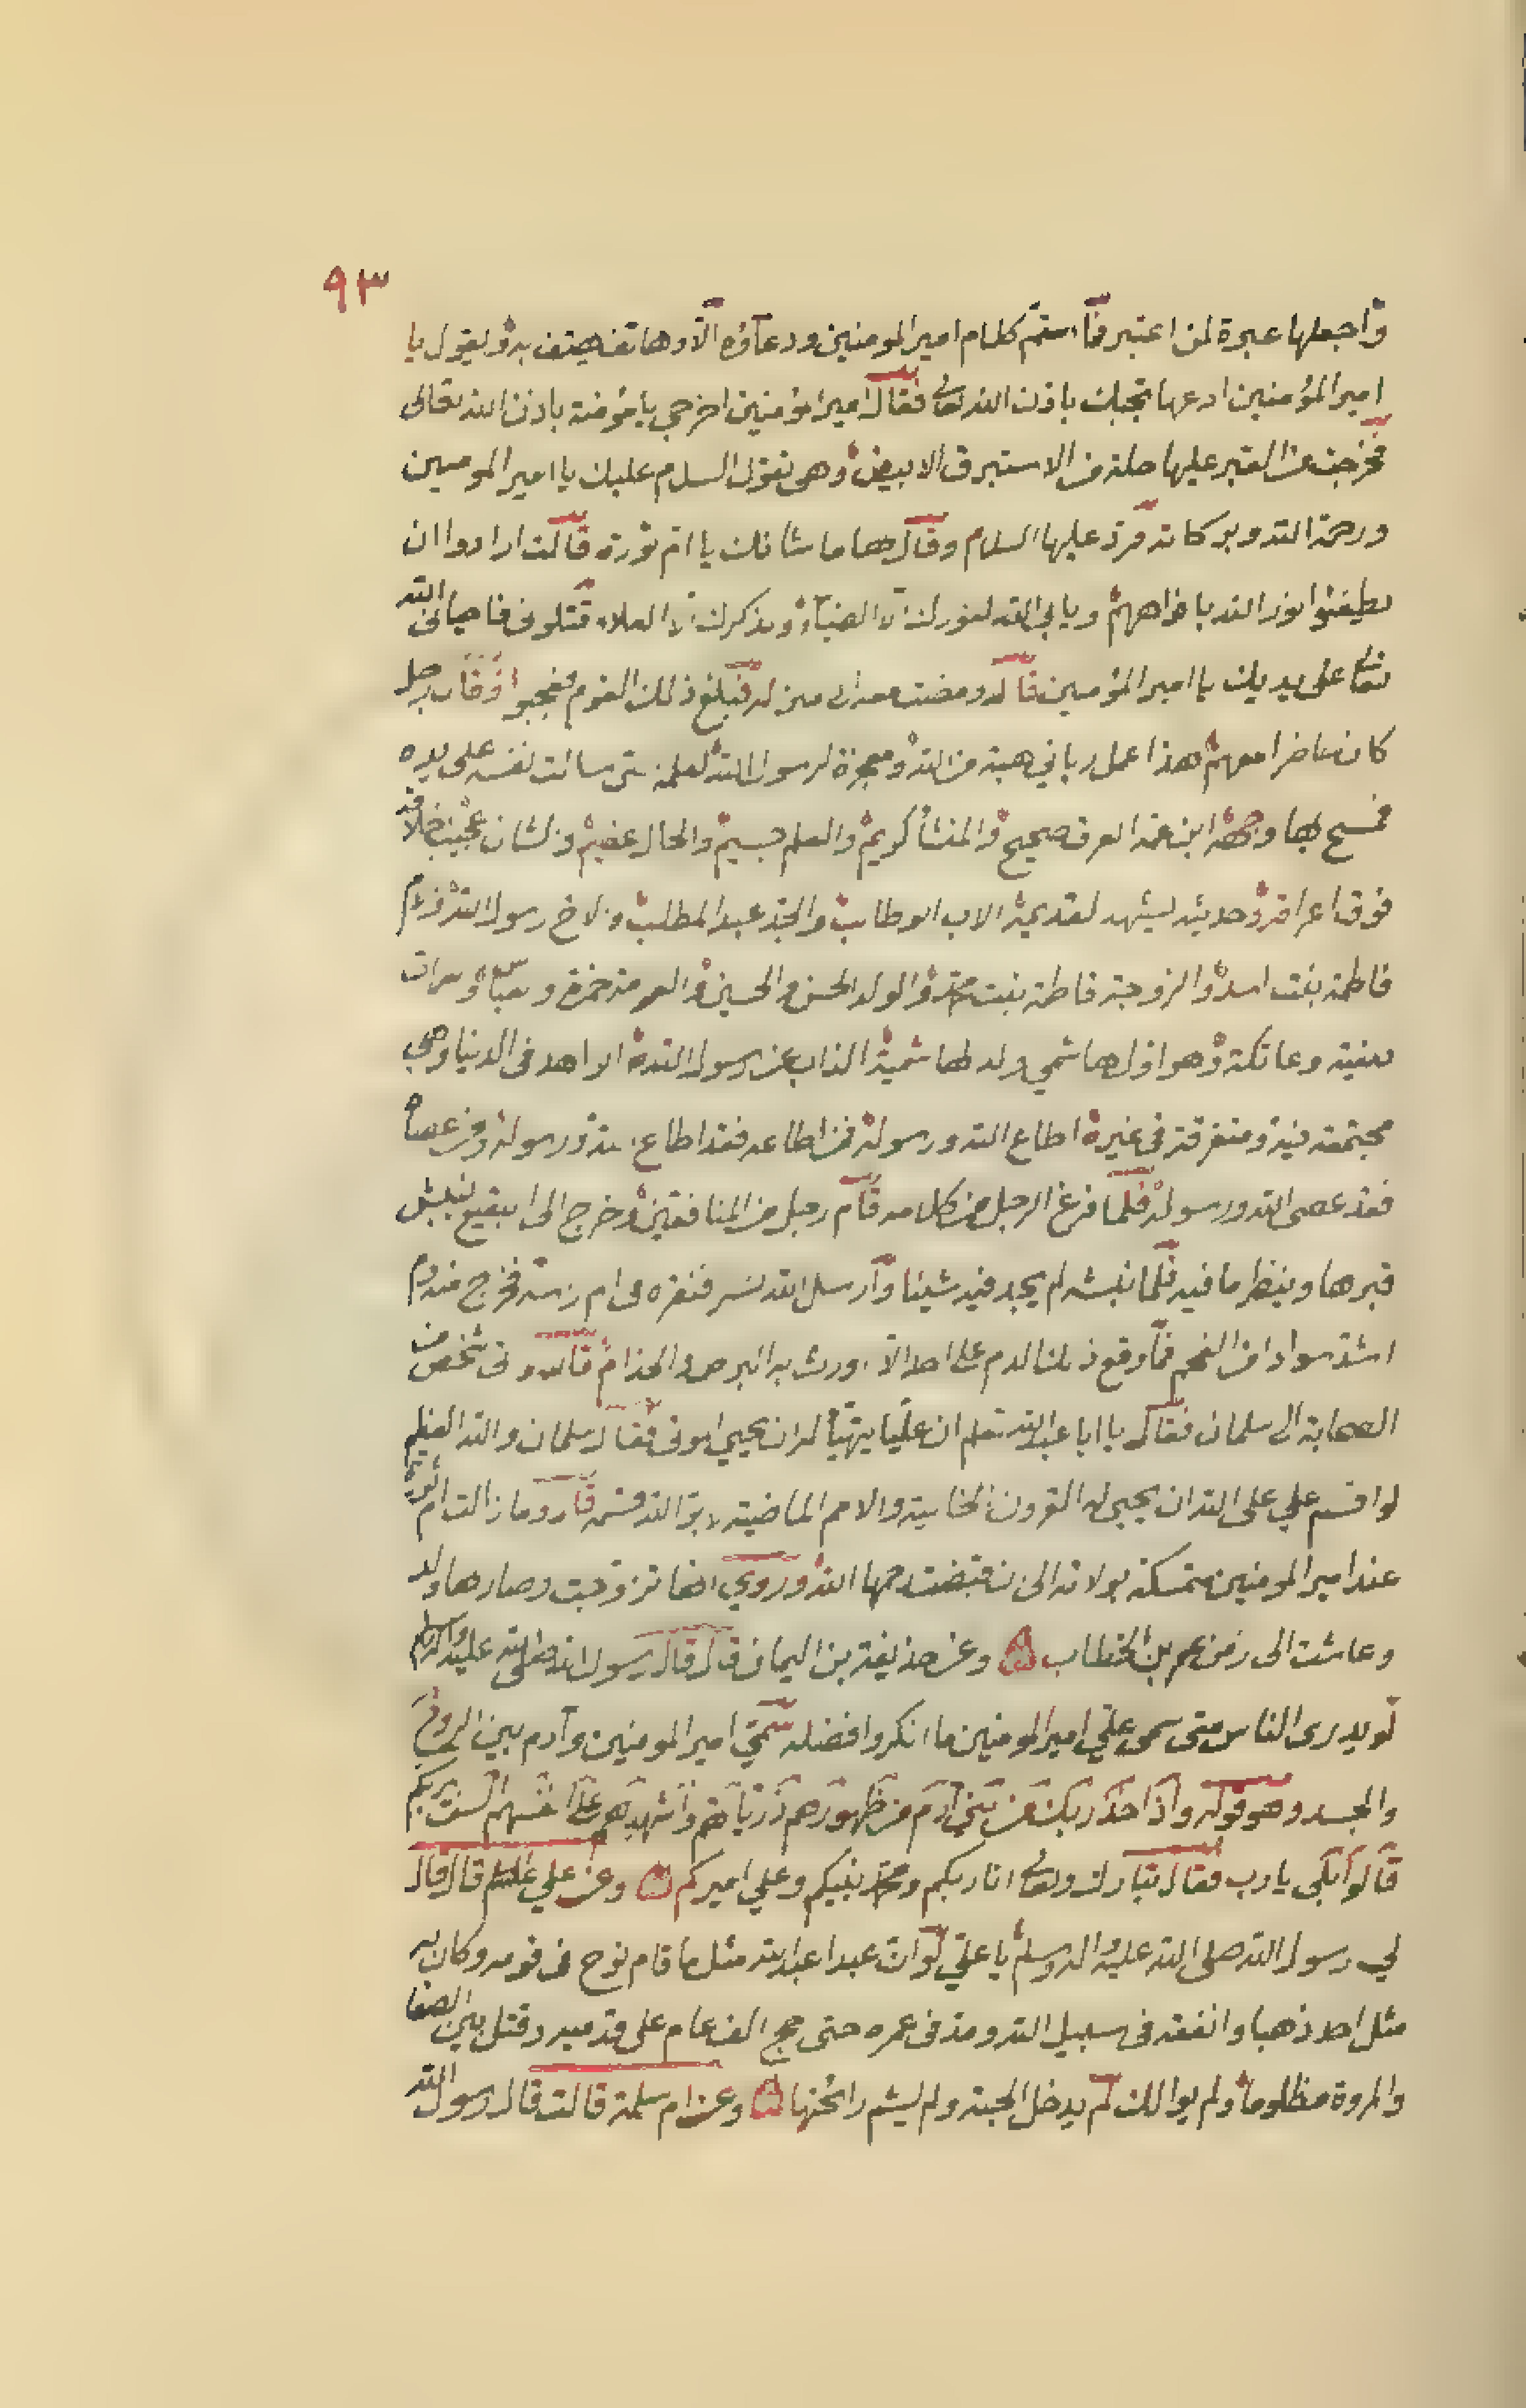 ٩٣
واجعلها عبرة لمن اعتبر فما استتم كلام امير المومنين ودعاؤه الا وهاتف يهتف به ويقول يا
امير المؤمنين ادعها تجبك باذن الله تعالى فقال امير المؤمنين اخرجي يا مؤمنة باذن الله تعالى
فخرجت من القبر عليها حلة من الاستبرق الابيض وهي تقول السلام عليك يا امير المومنين
ورحمة الله وبركاته فرد عليها السلام وقال لها ما شانك يا ام فورة قالت ارادوا ان
يطفئوا نور الله بافواههم ويابى الله لنورك الا الضياء وبذكرك الا العلاء قتلوني فاحياني الله
تعالى على يديك يا امير المؤمنين قال ومضت معه الى منزله فبلغ ذلك القوم فعجبوا فقال رجل
كان حاضرا معهم هذا عمل رباني هبة من الله ومعجزة لرسول الله لعلمه متى سالت نفسه على يده
فمسح بها وجهه ابن عمه العرق صحيح والمنشا كريم والعلم جسيم والحال عظيم والشان عجيب خلاقه
فوق اعراقه وحديثه يشهد لقديمه الاب ابو طالب والجد عبد المطلب والاخ رسول الله والام
فاطمة بنت اسد والزوجة فاطمة بنت محمد والولد الحسن والحسين والعمومة حمزة وعباس والعمات
صفية وعاتكة وهو اول هاشمي ولد لهاشمية الذاب عن رسول الله الزاهد في الدنيا وهي
مجتمعة فيه ومتفرقة في غيره اطاع الله ورسوله فمن اطاعه فقد اطاع الله ورسوله ومن عصاه
فقد عصى الله ورسوله فلما فرغ الرجل من كلامه قام رجل من المنافقين وخرج الى البقيع لينبش
قبرها وينظر ما فيه فلما نبشه لم يجد فيه شيئا وارسل الله نسر فنقره في ام راسه فخرج منه دم
اشد سوادا من الفحم فما وقع ذلك الدم على احد الا اورث به البرص والجذام قال ودنى شخص من
الصحابة الى سلمان فقال يا ابا عبد الله تعلم ان عليا يتهيأ له ان يحيي الموتى فقال سلمان والله العظيم
لو اقسم علي على الله ان يحيي له القرون الخالية والامم الماضية لابر الله قسمه قال وما زالت ام فورة
عند امير المومنين متمسكة بولائه الى ان قبضت رحمها الله وروي انها تزوجت وصار لها ولد
وعاشت الى زمن عمر بن الخطاب وعن حذيفة بن اليمان قال قال رسول الله صلى الله عليه واله وسلم
لو يدرى الناس متى سمى علي امير المومنين ما انكروا فضله سمي امير المومنين وآدم بين الروح
والجسد وهو قوله واذ اخذ ربك من بني آدم من ظهورهم ذرياتهم واشهدهم على انفسهم الست بربكم
قالوا بلى يا رب فقال تبارك وتعالى انا ربكم ومحمد نبيكم وعلي اميركم وعن علي عليه السلام قال قال
لي رسول الله صلى الله عليه واله وسلم يا علي لو ان عبدا عبد الله مثل ما قام نوح في قومه وكان له
مثل احد ذهبا وانفقه في سبيل الله ومد في عمره حتى حج الف عام على قدميه وقتل بين الصفا
والمروة مظلوما ولم يوالك لم يدخل الجنة ولم يشم رائحتها وعن ام سلمة قالت قال رسول الله